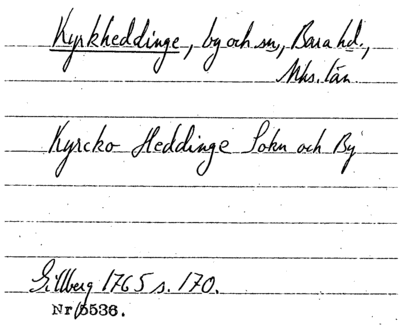 Kyrkheddinge, by och sn, Bara hd.,
Mhs. län
Kyrcko Heddinge Sokn och By
Gillberg 1765 s. 170.
Nr 5536.